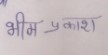 भीम प्रकाश